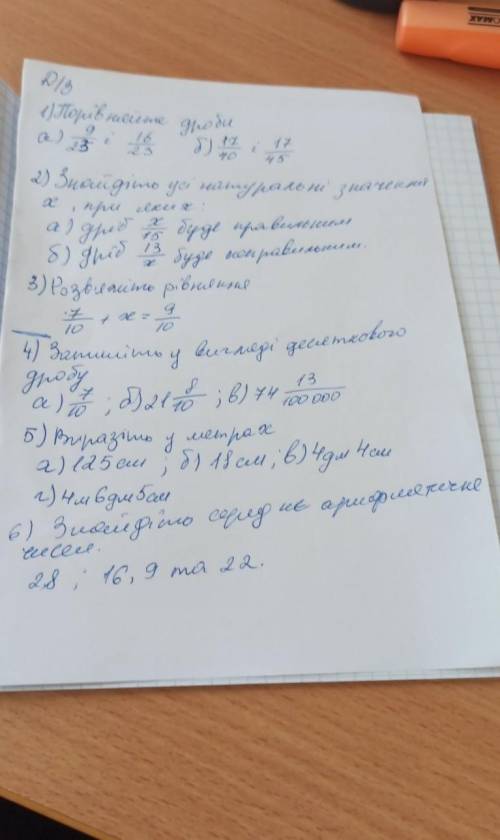 Д/З
1) Порівняйте дроби
а) 9/23 і 16/23 б) 17/40 і 17/45
2) Знайдіть усі натуральні значення
x, при яких:
а) дріб x/15 буде правильним
б) дріб 13/x буде неправильним.
3) Розвяжіть рівняння
7/10 + x = 9/10
4) Запишіть у вигляді десяткового
дробу
а) 7/10 ; б) 21 8/10 ; в) 74 13/100000
5) Виразіть у метрах
а) 125 см ; б) 18 см ; в) 4 дм 4 см
г) 4 м 6 дм 5 см
6) Знайдіть середнє арифметичне
чисел.
28 ; 16, 9 та 22.